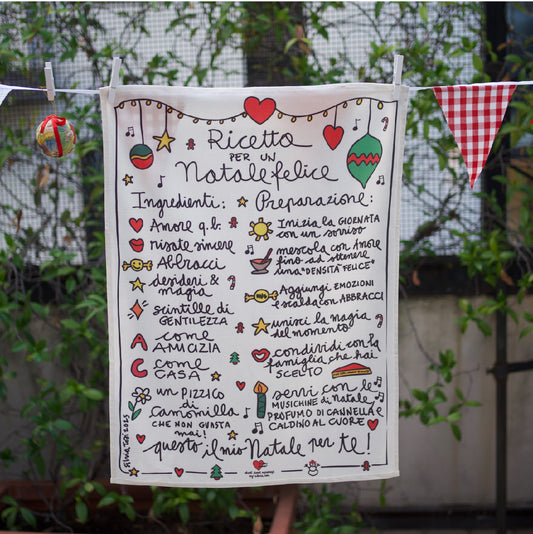 Ricetta
PER UN
Natale felice
Ingredienti:
Amore q.b.
risate sincere
ABBRACCI
desideri &
magia
scintille di
GENTILEZZA
come
AMICIZIA
come
CASA
un PIZZICO
di
camomilla
CHE NON GUASTA
mai!
Preparazione:
Inizia la GIORNATA
con un sorriso
mescola con Amore
fino ad ottenere
una "DENSITÀ FELICE"
Aggiungi EMOZIONI
e scalda con ABBRACCI
unisci la magia
del momento
condividi con la
famiglia che hai
SCELTO
servi con le
MUSICHINE di Natale
PROFUMO DI CANNELLA E
CALDINO AL CUORE
questo il mio Natale per te!